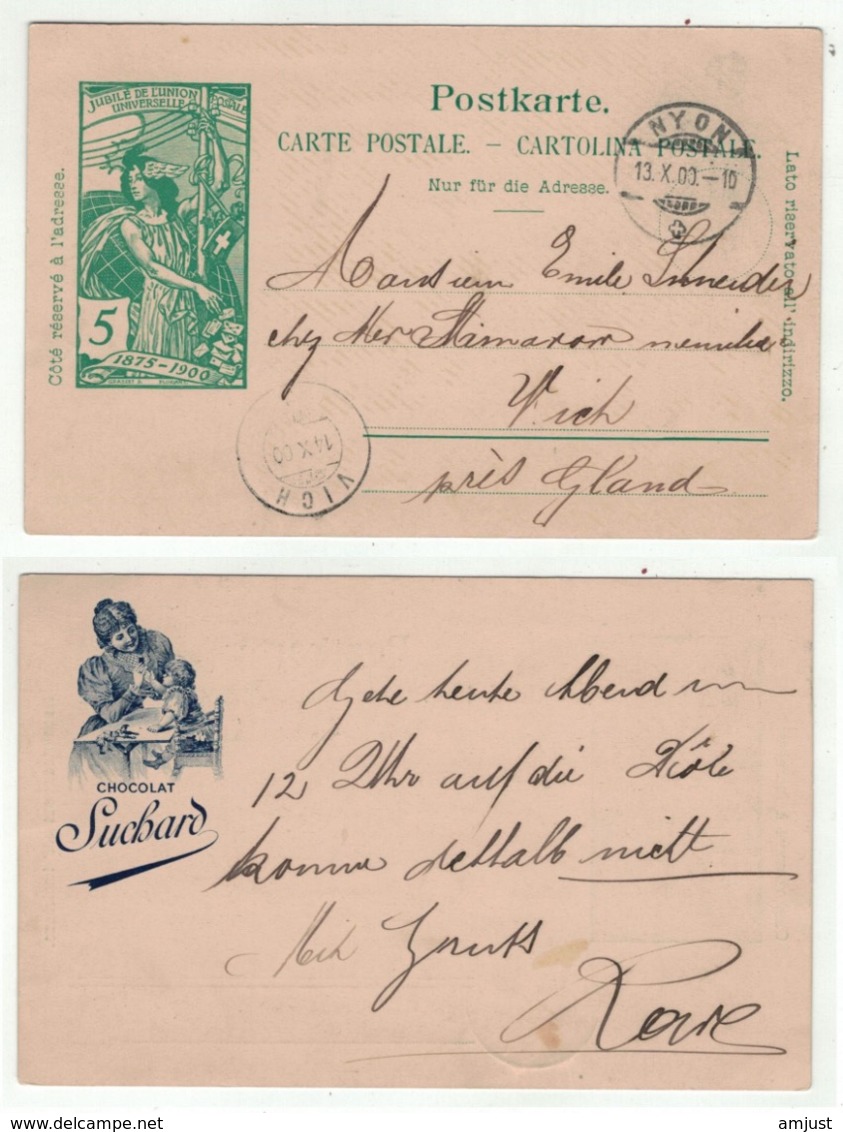 JUBILÉ DE L'UNION
UNIVERSELLE POSTALE
5
1875-1900
Côté réservé à l'adresse.
Postkarte.
CARTE POSTALE. — CARTOLINA POSTALE.
Nur für die Adresse.
Lato riservato all' indirizzo.
NYON
13.X.00.-10
Monsieur Emile
chez
Vich
près Gland
VICH
14 X 00
CHOCOLAT
Suchard
Gehe heute Abend um
12 Uhr auf die Dôle
komme desshalb nicht
Mit Gruss